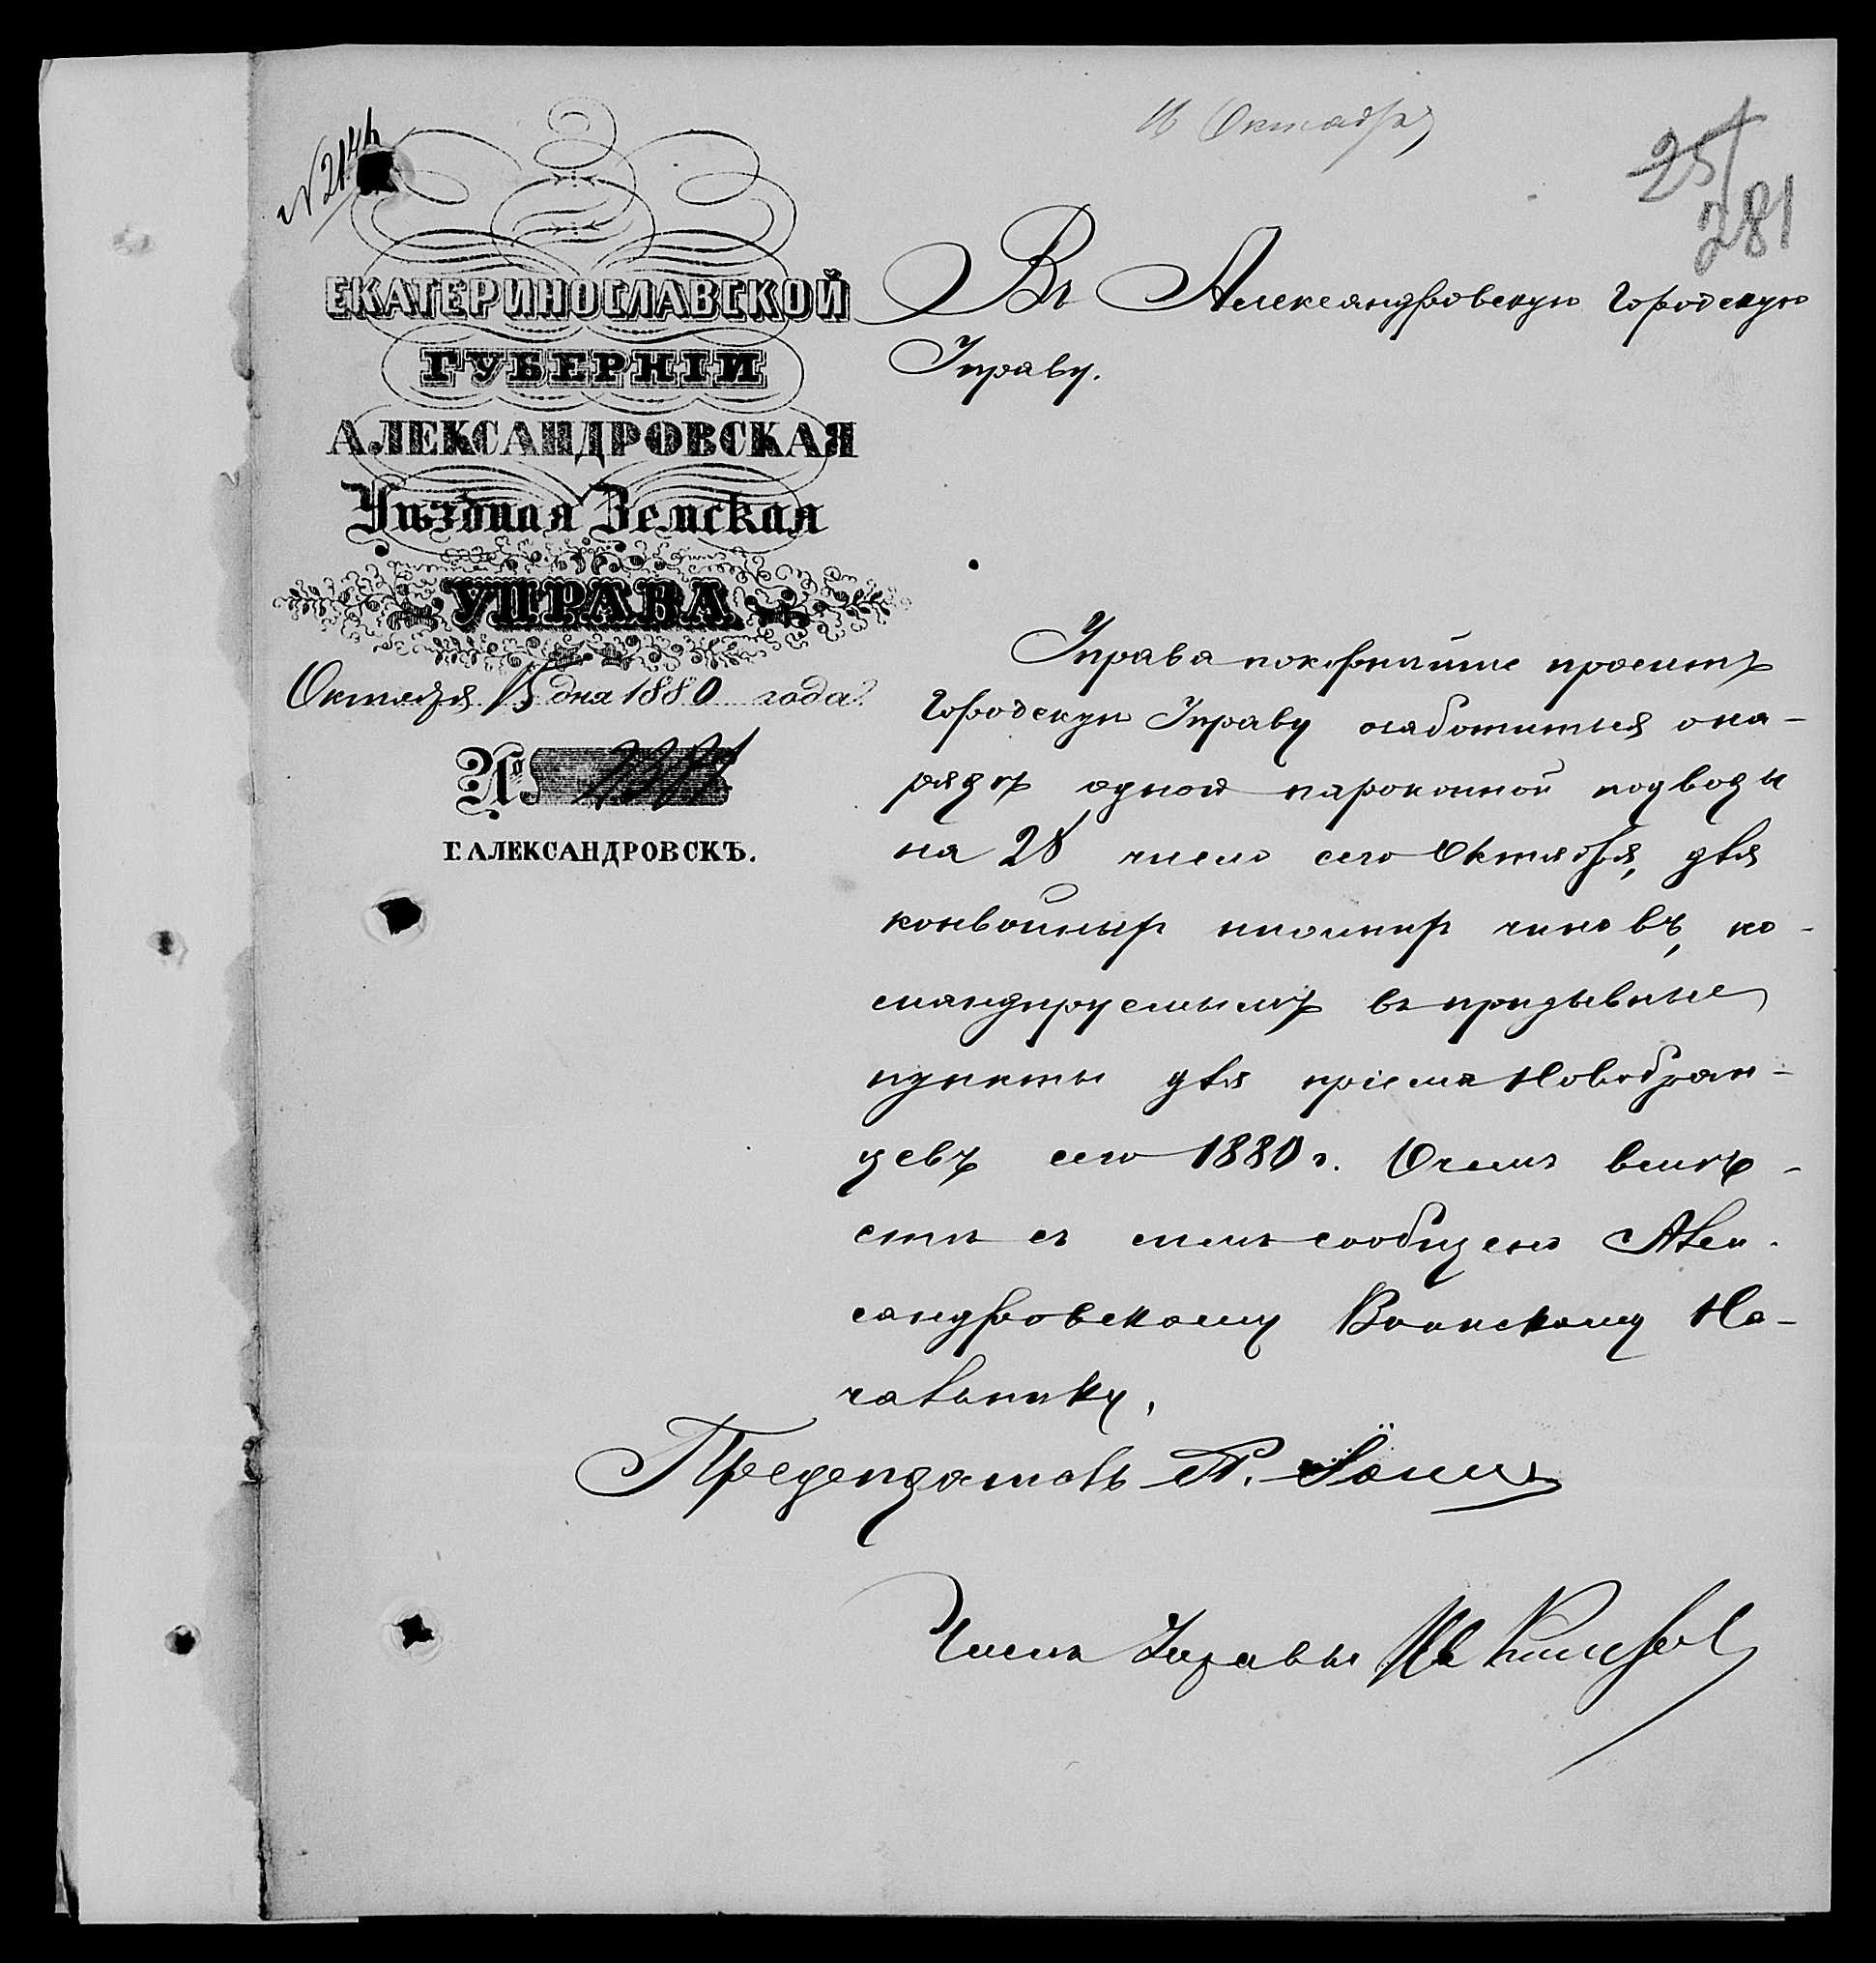 16 Октября
25
281
ЕКАТЕРИНОСЛАВСКОЙ
ГУБЕРНІИ
АЛЕКСАНДРОВСКАЯ
Уѣздная Земская
УПРАВА
Октября 15 дня 1880 года
№
Г. АЛЕКСАНДРОВСКЪ.
Въ Александровскую Городскую
Управу.
Управа покорнѣйше проситъ
Городскую Управу озаботиться о на-
рядѣ одной пароконной подводы
на 28 число сего Октября, для
конвойныхъ нижнихъ чиновъ, ко-
мандируемымъ въ призывные
пункты для пріема Новобран-
цевъ сего 1880 г. О чемъ вмѣ-
стѣ съ симъ сообщено Алек-
сандровскому Воинскому На-
чальнику.
Предсѣдатель
Членъ Управы